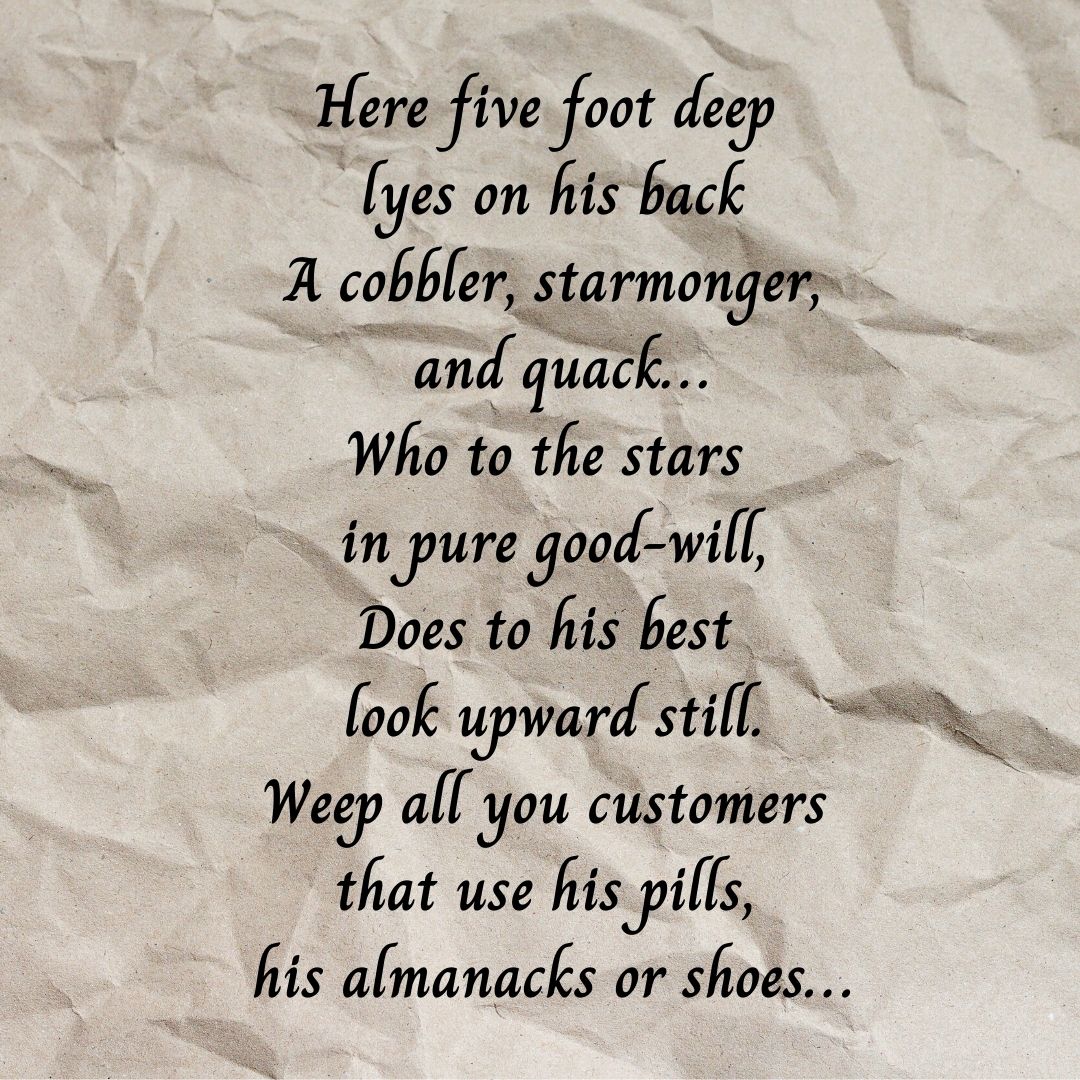 Here five foot deep
lyes on his back
A cobbler, starmonger,
and quack...
Who to the stars
in pure good-will,
Does to his best
look upward still.
Weep all you customers
that use his pills,
his almanacks or shoes...